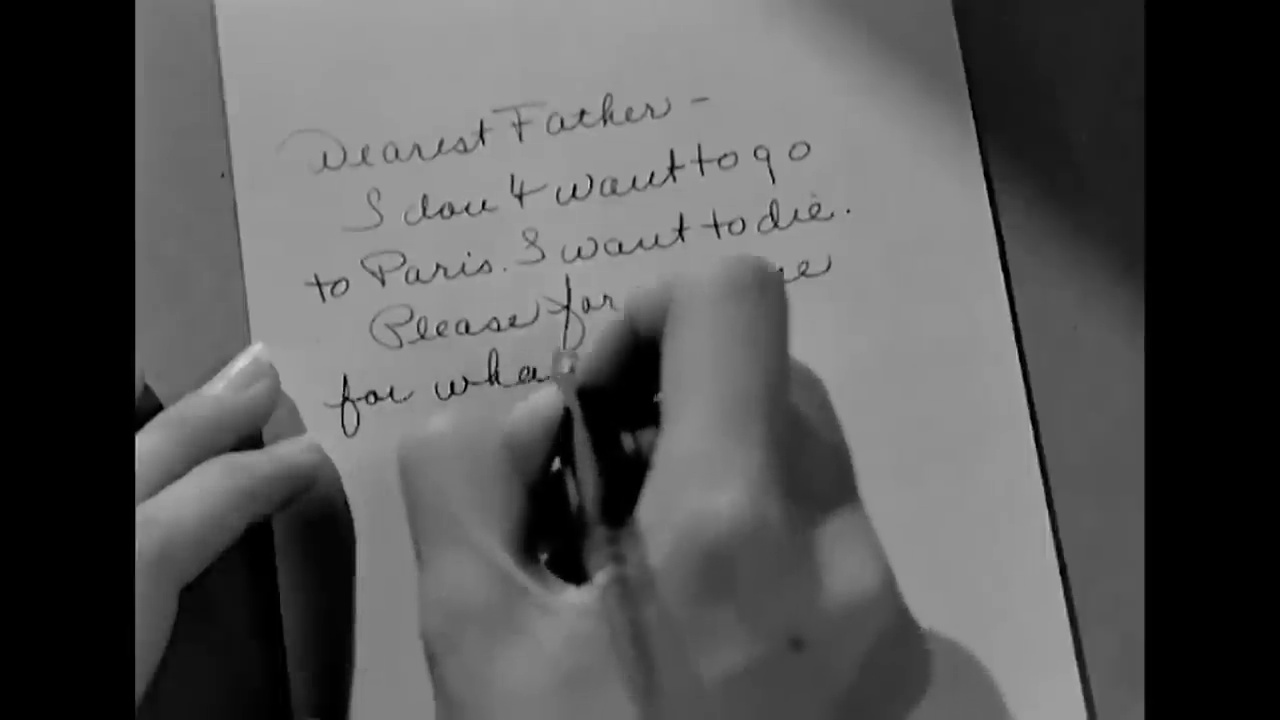 Dearest Father -
I don't want to go
to Paris. I want to die.
Please
for